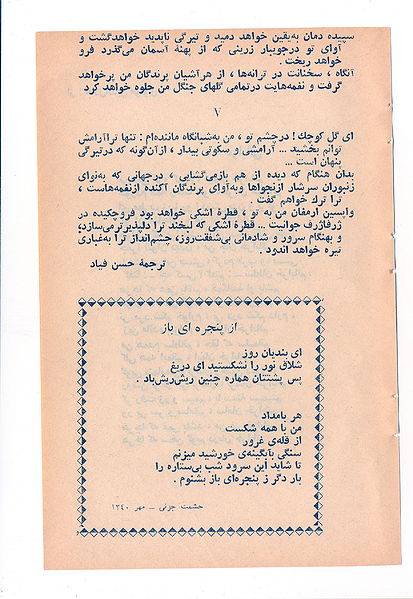 سپیده دمان به‌یقین خواهد دمید و تیرگی ناپدید خواهدگشت و
آوای تو درجویبار زرینی که از پهنهٔ آسمان می‌گذرد فرو
خواهد ریخت .
آنگاه ، سخنانت در ترانه‌ها ، از هرآشیان پرندگان من پرخواهد
گرفت و نغمه‌هایت درتمامی گلهای جنگل من جلوه خواهد کرد
۷
ای گل کوچك ! درچشم تو ، من به‌شبانگاه ماننده‌ام : تنها تراآرامش
توانم بخشید ... آرامشی و سکوتی بیدار ، ازآن‌گونه که درتیرگی
پنهان است ...
بدان هنگام که دیده از هم بازمی‌گشایی ، درجهانی که به‌نوای
زنبوران سرشار ازنجواها وبه‌آوای پرندگان آکنده ازنغمه‌هاست ،
ترا ترك خواهم گفت .
واپسین ارمغان من به تو ، قطرهٔ اشکی خواهد بود فروچکیده در
ژرفاژرف جوانیت ... قطرهٔ اشکی که لبخند ترا دلپذیرترمی‌سازد،
و بهنگام سرور و شادمانی بی‌شفقت‌روز، چشم‌انداز ترا به‌غباری
تیره خواهد اندود .
ترجمهٔ حسن فیاد
از پنجره ای باز
ای بندیان روز
شلاق نور را نشکستید ای دریغ
بس پشتتان هماره چنین ریش‌ریش‌باد .
هر بامداد
من با همه شکست
از قله‌ی غرور
سنگی بآبگینه‌ی خورشید میزنم
تا شاید این سرود شب بی‌ستاره را
بار دگر ز پنجره‌ای باز بشنوم .
حشمت جزنی – مهر ۱۳۴۰